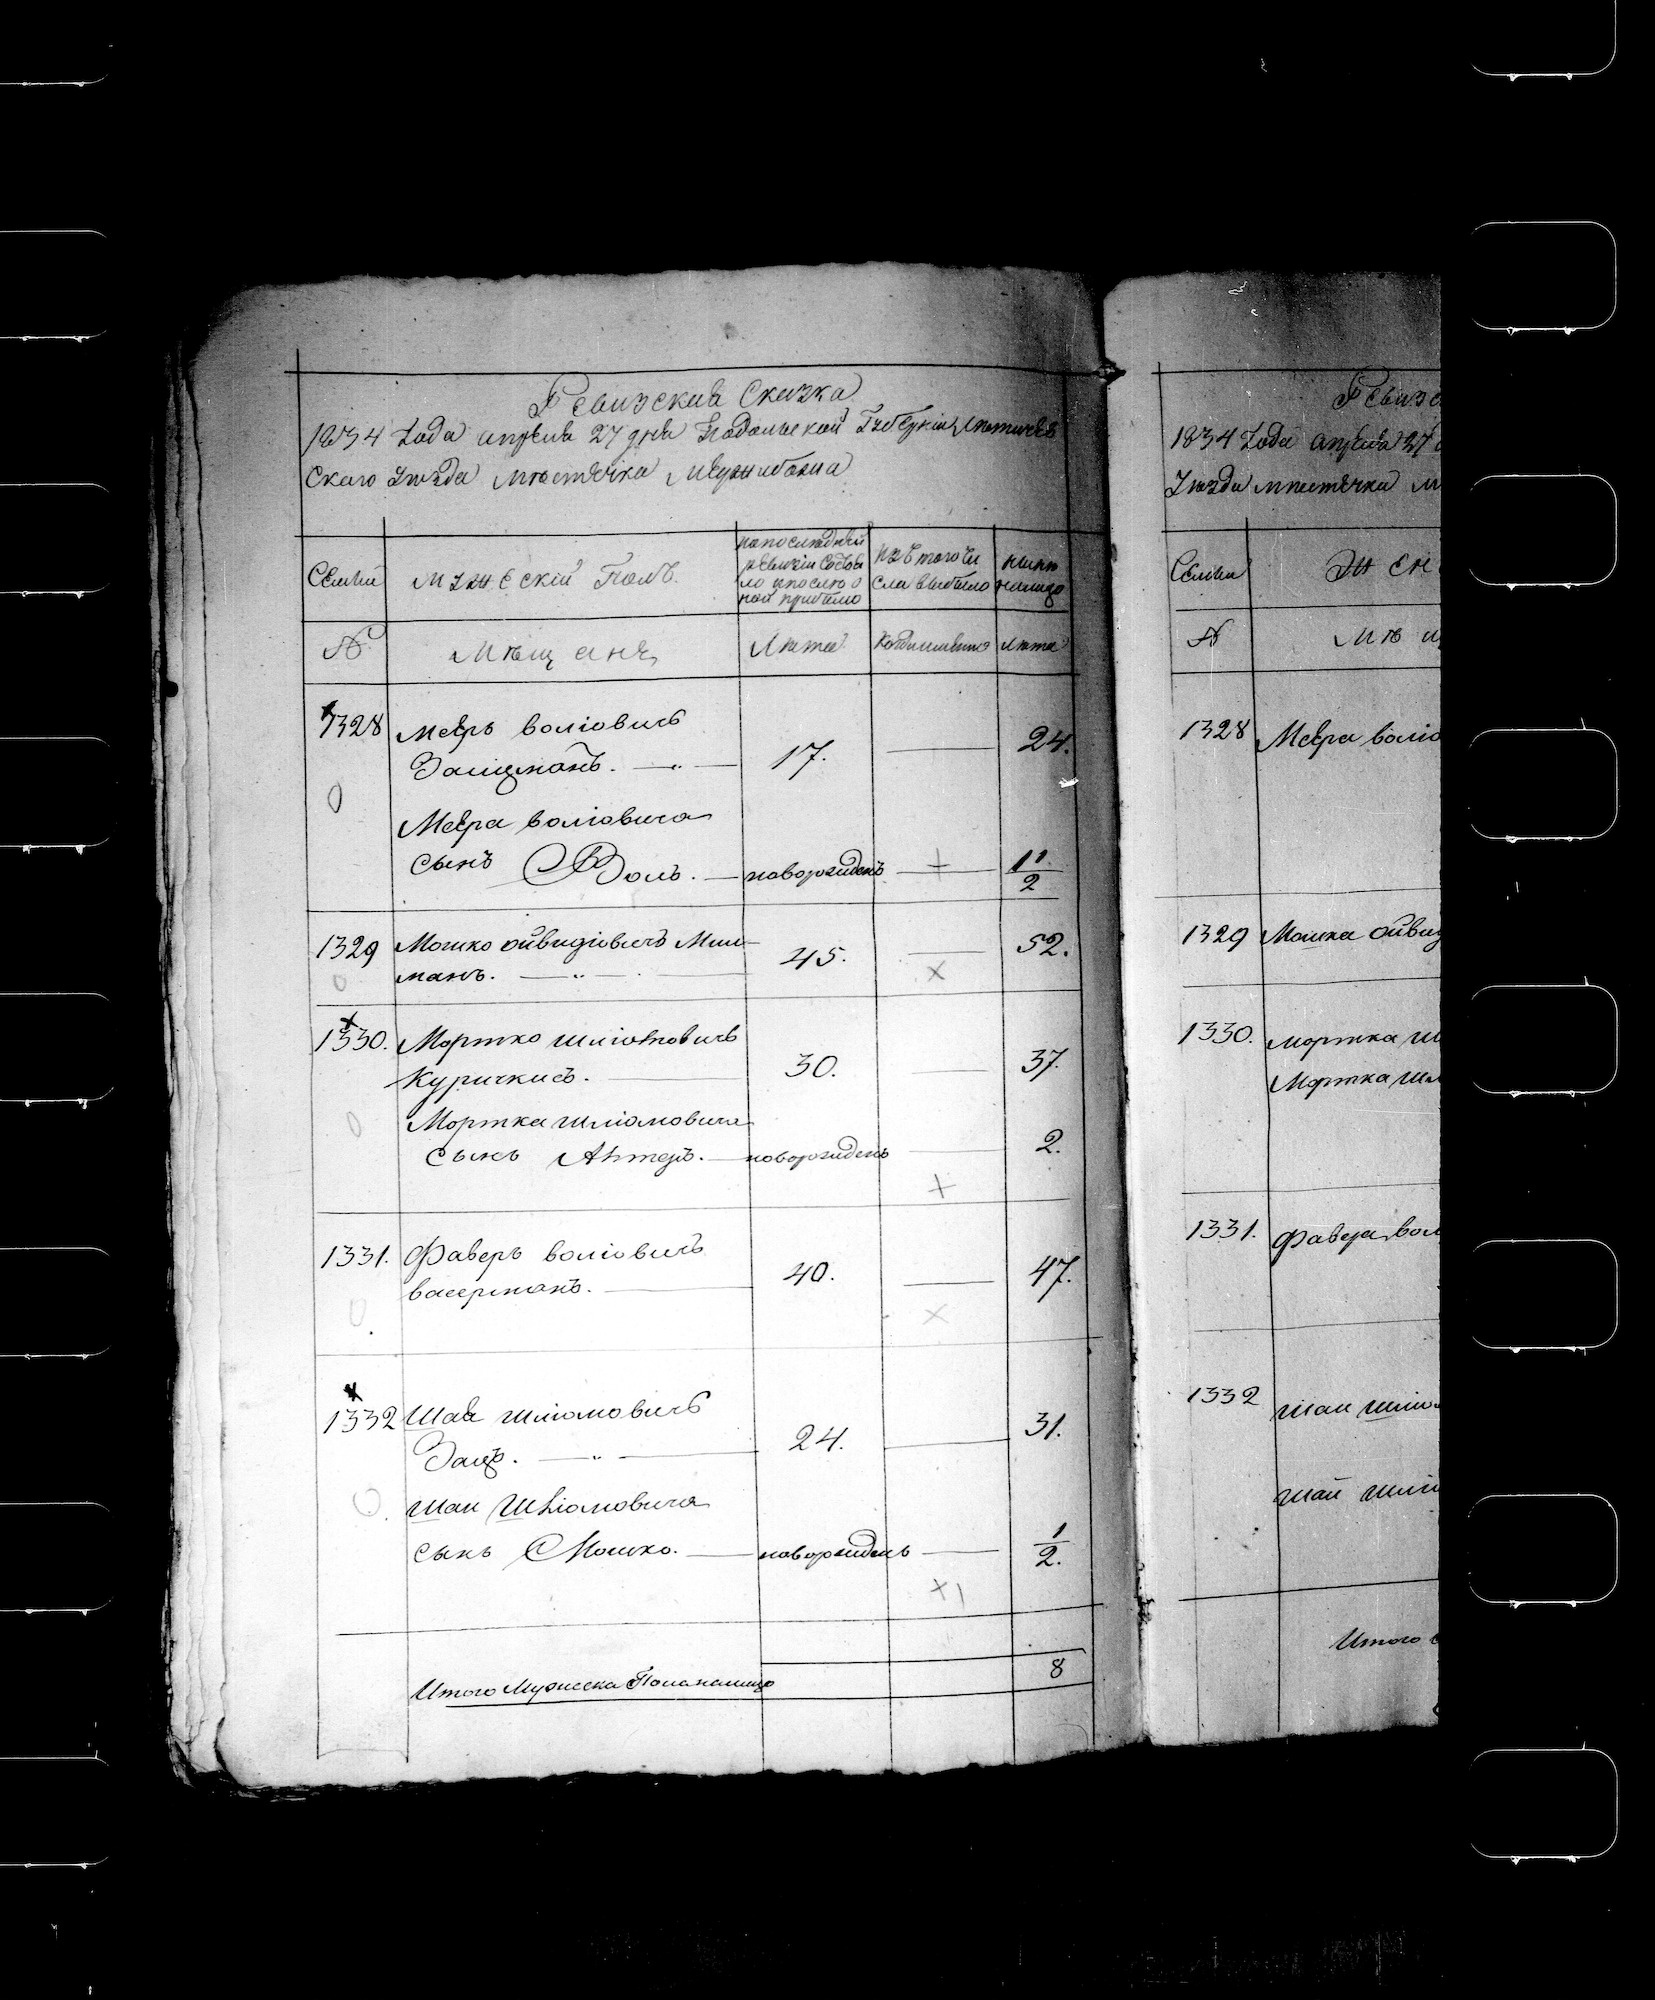 Ревизская Сказка
1834 года апреля 27 дня Подольской Губернии Летичев
Скаго уезда местечка Межибожа
Семьи
мужескій Полъ.
по последней
ревизіи состоя
ло и после о
ной прибыло
Изъ того чи
сла выбыло
ныне
налицо
№
Мещане
Лета
Когда именно
Лета
1328 Меръ Волiовичъ
Залiцманъ. 17. 24.
Мера Волiовича
сынъ Волъ. новорожденъ 1 1/2
1329 Мошко ойвидiовичъ Мил-
манъ. 45. 52.
1330. Мортко шлiомовичъ
Куричкисъ. 30. 37.
Мортка шлiомовича
сынъ новорожденъ 2.
1331. Фаверъ волiовичъ
васерманъ. 40. 47.
1332 Шая шлiомовичъ
Зацъ. 24. 31.
шаи Шлiомовича
сынъ Мошко. новорожденъ 1/2.
Итого Мужеска Пола налицо 8
Ревизс
1834 Года апреля 27
Уезда местечка М
Семьи
Жен
№
Ме щ
1328 Мера волiо
1329 Мошка ойвид
1330. мортка ш
Мортка шл
1331. Фавера вол
1332 шаи шлiо
шаи шлi
Итого